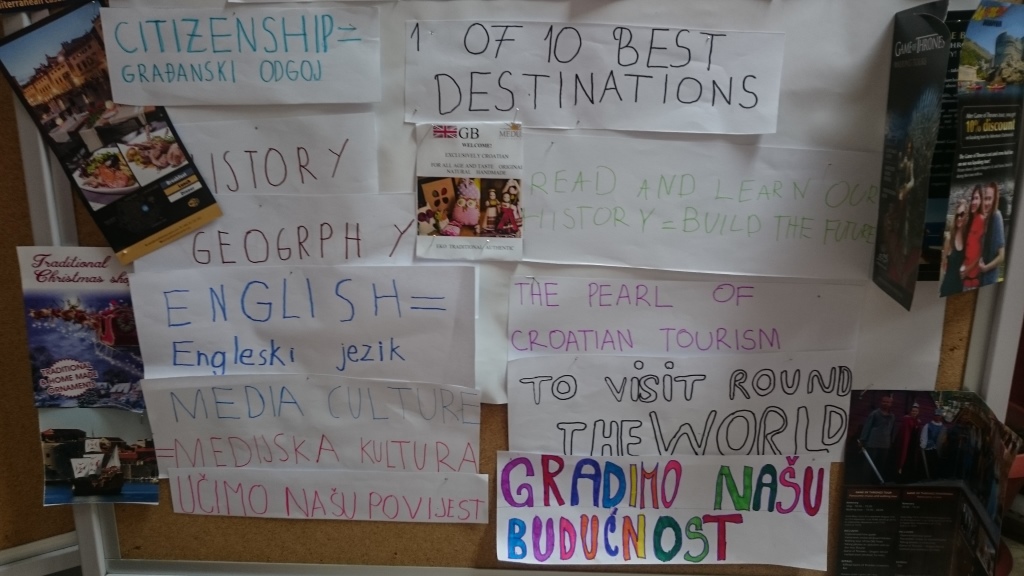 CITIZENSHIP=
GRAĐANSKI ODGOJ
ISTORY
GEOGRPHY
ENGLISH=
Engleski jezik
MEDIA CULTURE
=MEDIJSKA KULTURA
UČIMO NAŠU POVIJEST
1 OF 10 BEST
DESTINATIONS
GB
WELCOME!
EXCLUSIVELY CROATIAN
FOR ALL AGE AND TASTE - ORIGINAL
NATURAL HANDMADE
READ AND LEARN OUR
HISTORY=BUILD THE FUTURE
THE PEARL OF
CROATIAN TOURISM
TO VISIT ROUND
THE WORLD
GRADIMO NAŠU
BUDUĆNOST
Traditional
Christmas
TRADITIONAL
GAME OF THRONES
10% discount